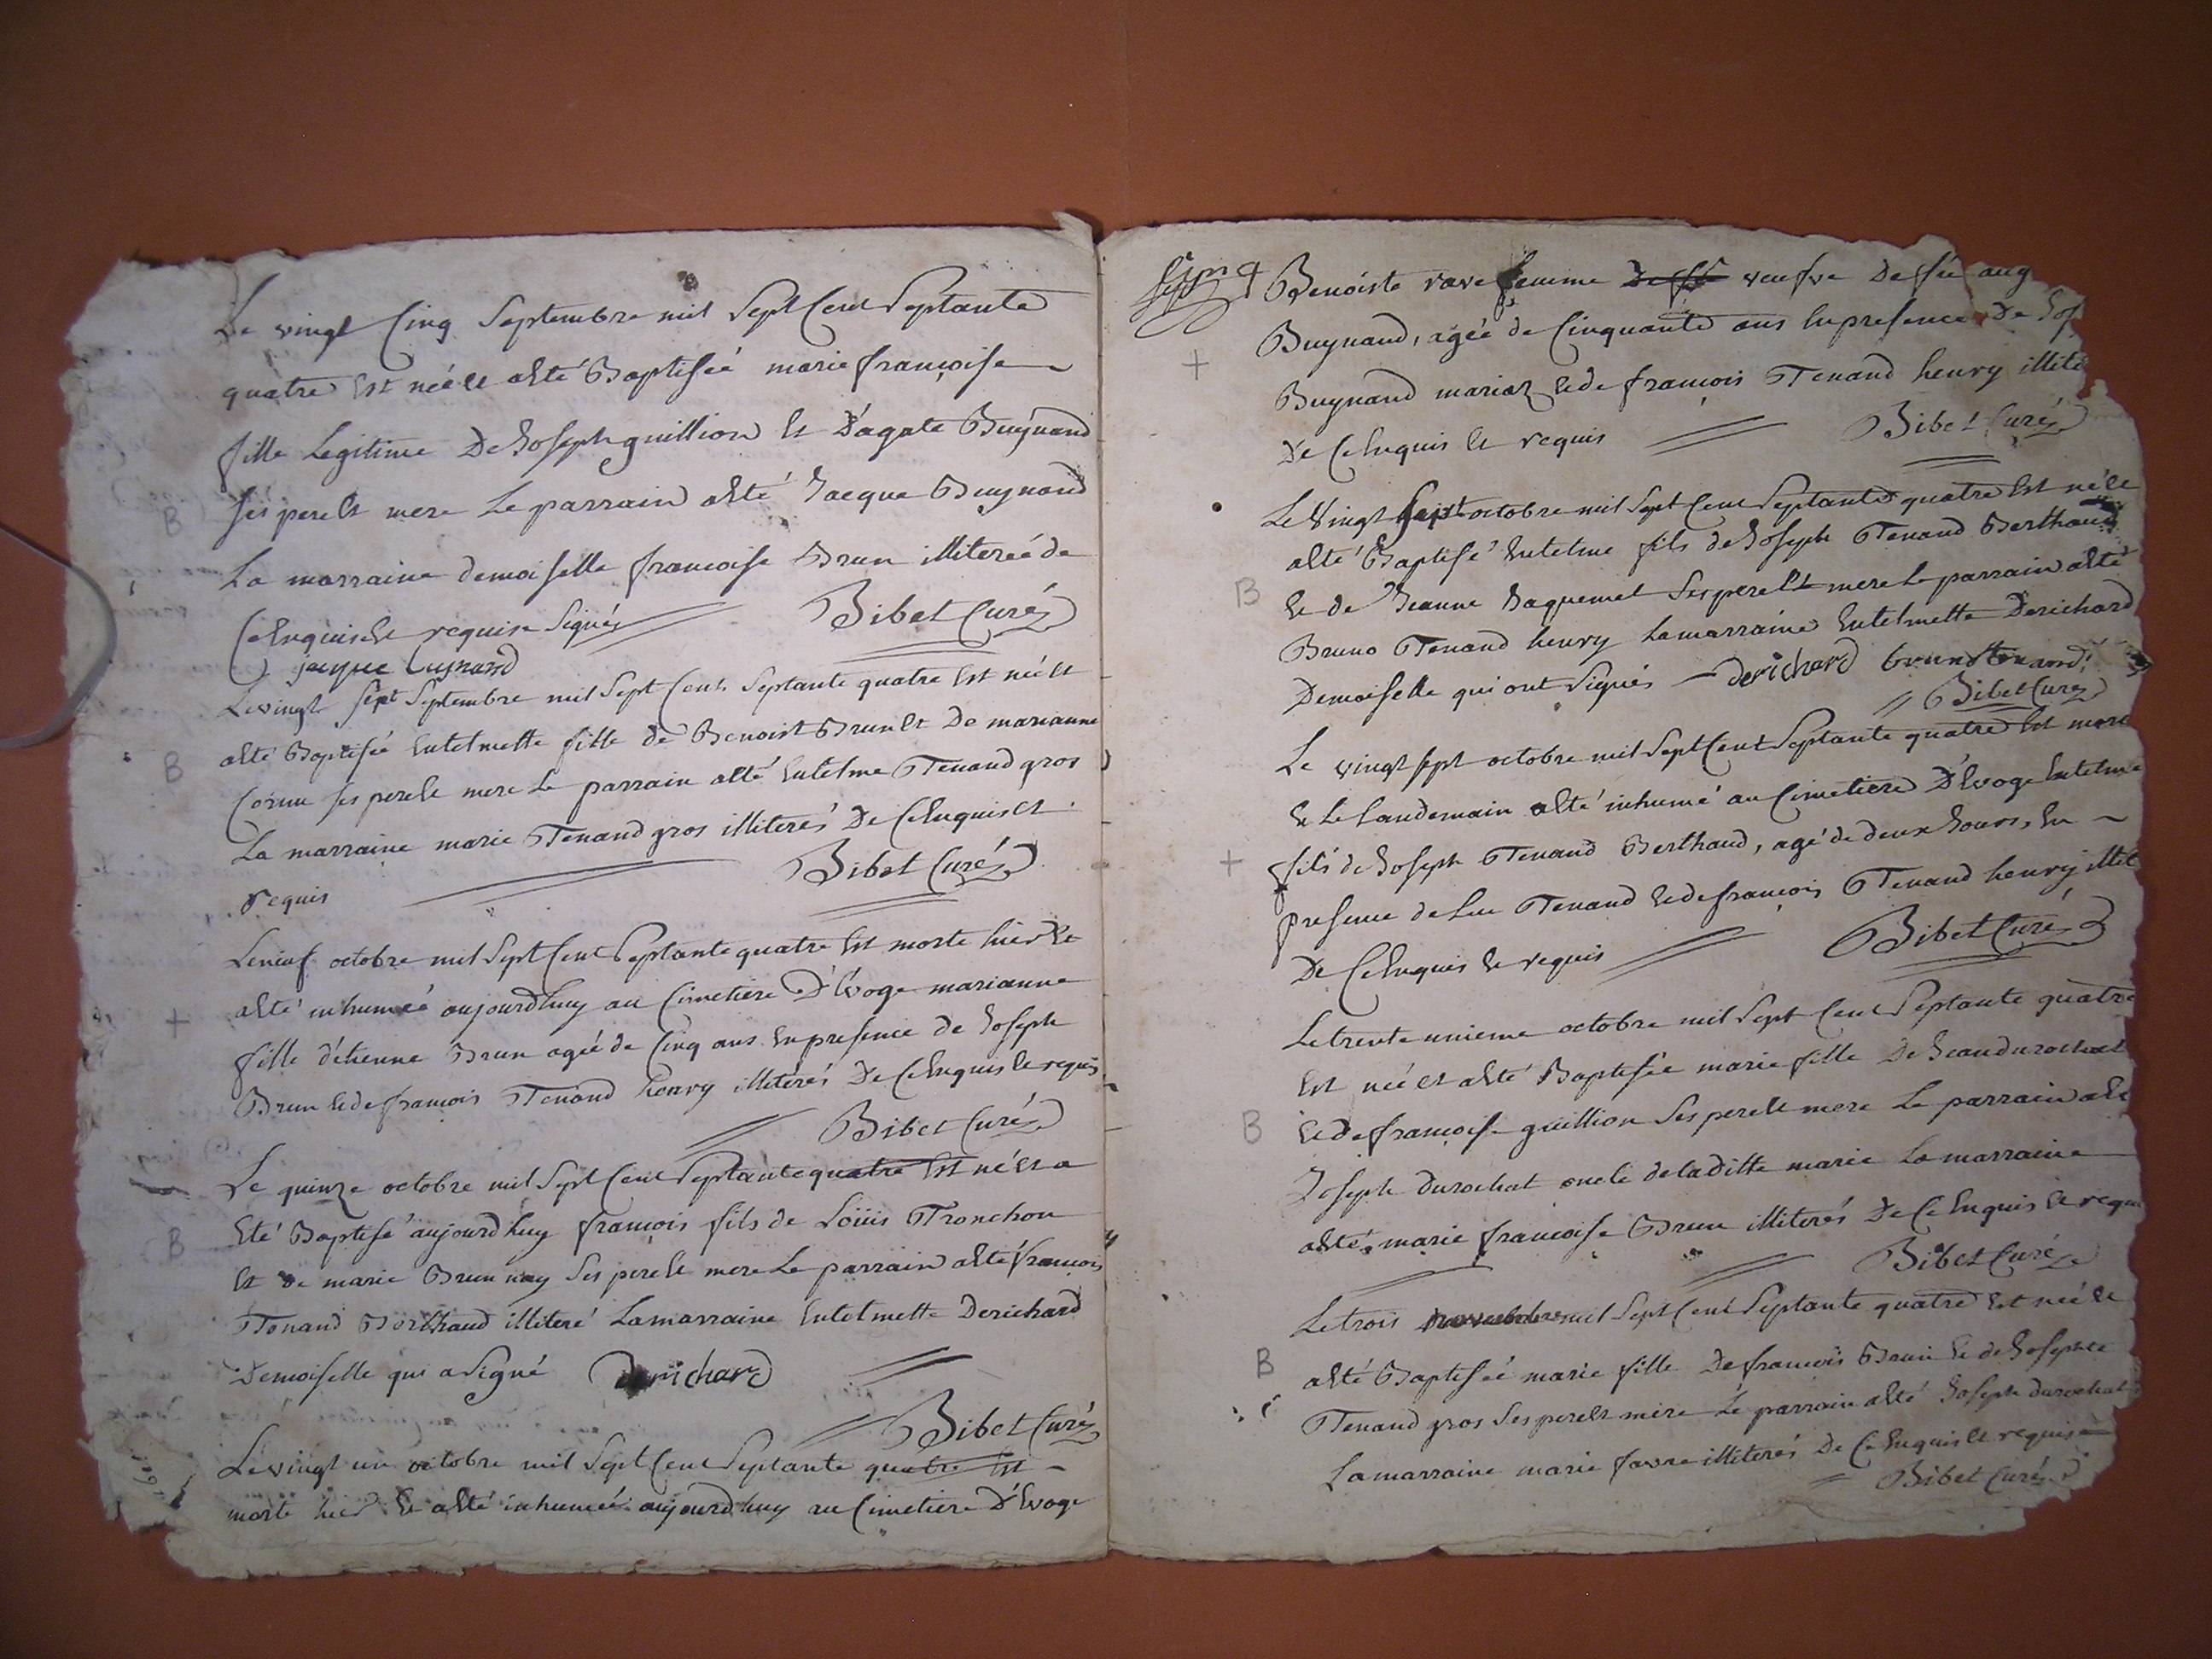 Le vingt Cinq Septembre mil Sept Cent Septante
quatre Est néé et a Eté Baptiséé marie françoise
fille Legitime De Joseph guillion Et D'agate Buynand
ses pere Et mere Le parrain a Eté Jacque Buynand
La marraine demoiselle francoise Brun illitereé de
Ce Enquise Et requise Signés Bibet Curé
jacque Buynand
Le vingt sept Septembre mil Sept Cent Septante quatre Est néé Et
B a Eté Baptiséé Entelmette fille de Benoist Brun Et De marianne
Cornu ses pere Et mere Le parrain a Eté Entelme Tenand gros
La marraine marie Tenand gros illiterés De Ce Enquis Et
requis Bibet Curé
Le neuf octobre mil Sept Cent Septante quatre Est morte hier Et
+ a Eté inhuméé aujourdhuy au Cimetiere D'Evoge marianne
fille d'étienne Brun agéé de Cinq ans En presence de Joseph
Brun Et de françois Tenand henry illiterés De Ce Enquis Et requis
Bibet Curé
Le quinze octobre mil Sept Cent Septante quatre Est né Et a
B Eté Baptisé aujourdhuy françois fils de Loüis Tronchon
Et de marie Brun nay Ses pere Et mere Le parrain a Eté françois
Tenand Berthaud illiteré La marraine Entelmette Derichard
Demoiselle qui a Signé Derichard
Bibet Curé
Le vingt un octobre mil Sept Cent Septante quatre Est
morte hier Et a Eté inhuméé aujourdhuy au Cimetiere D'Evoge
Benoiste rave femme veufve De féu aug
+ Buynand, agéé de Cinquante ans En presence De Jos
Buynand mariaz Et de françois Tenand henry illite
De Ce Enquis Et requis Bibet Curé
Le Vingt octobre mil Sept Cent Septante quatre Est né Et
a Eté Baptisé Entelme fils de Joseph Tenand Berthaud
B Et de Jeanne Jaquemet Ses pere Et mere Le parrain a Eté
Bruno Tenand henry La marraine Entelmette Derichard
Demoiselle qui ont Signés Derichard
Bibet Curé
Le vingt sept octobre mil Sept Cent Septante quatre Est mort
Et Le Landemain a Eté inhumé au Cimetiere D'Evoge Entelme
+ fils de Joseph Tenand Berthaud, agé de deux Jours, En
presence de Luc Tenand Et de françois Tenand henry illit
De Ce Enquis Et requis Bibet Curé
Le trente unieme octobre mil Sept Cent Septante quatre
Est néé Et a Eté Baptiséé marie fille De Jean durochat
B Et De françoise guillion Ses pere Et mere Le parrain a Eté
Joseph durochat oncle de laditte marie La marraine
a Eté marie francoise Brun illiterés De Ce Enquis Et requi
Bibet Curé
Le trois novembre mil Sept Cent Septante quatre Est néé Et
B a Eté Baptiséé marie fille De françois Brun Et de Josephte
Tenand gros Ses pere Et mere Le parrain a Eté Joseph durochat
La marraine marie favre illiterés De Ce Enquis Et requis
Bibet Curé